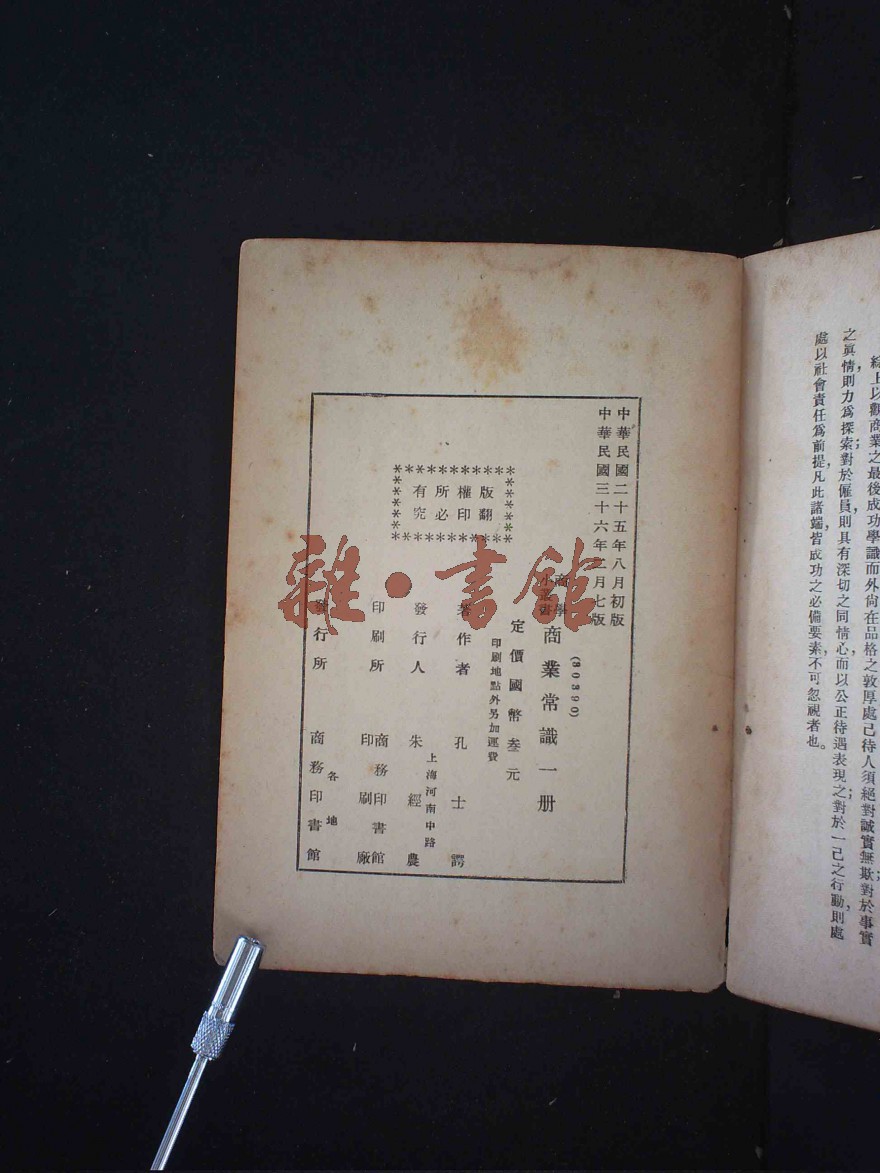 綜上以觀商業之最後成功學識而外尙在品格之敦厚處己待人須絕對誠實無欺對於事實
之眞情,則力爲探索;對於僱員,則具有深切之同情心,而以公正待遇表現之;對於一己之行動,則處
處以社會責任爲前提,凡此諸端,皆成功之必備要素,不可忽視者也。
中華民國二十五年八月初版
中華民國三十六年二月七版
(80390)
商學
小叢書
商業常識一册
定價國幣叁元
印刷地點外另加運費
版權所有
翻印必究
著作者 孔士諤
上海河南中路
發行人 朱經農
印刷所 商務印書館
印刷廠
各地
發行所 商務印書館
雜·書館